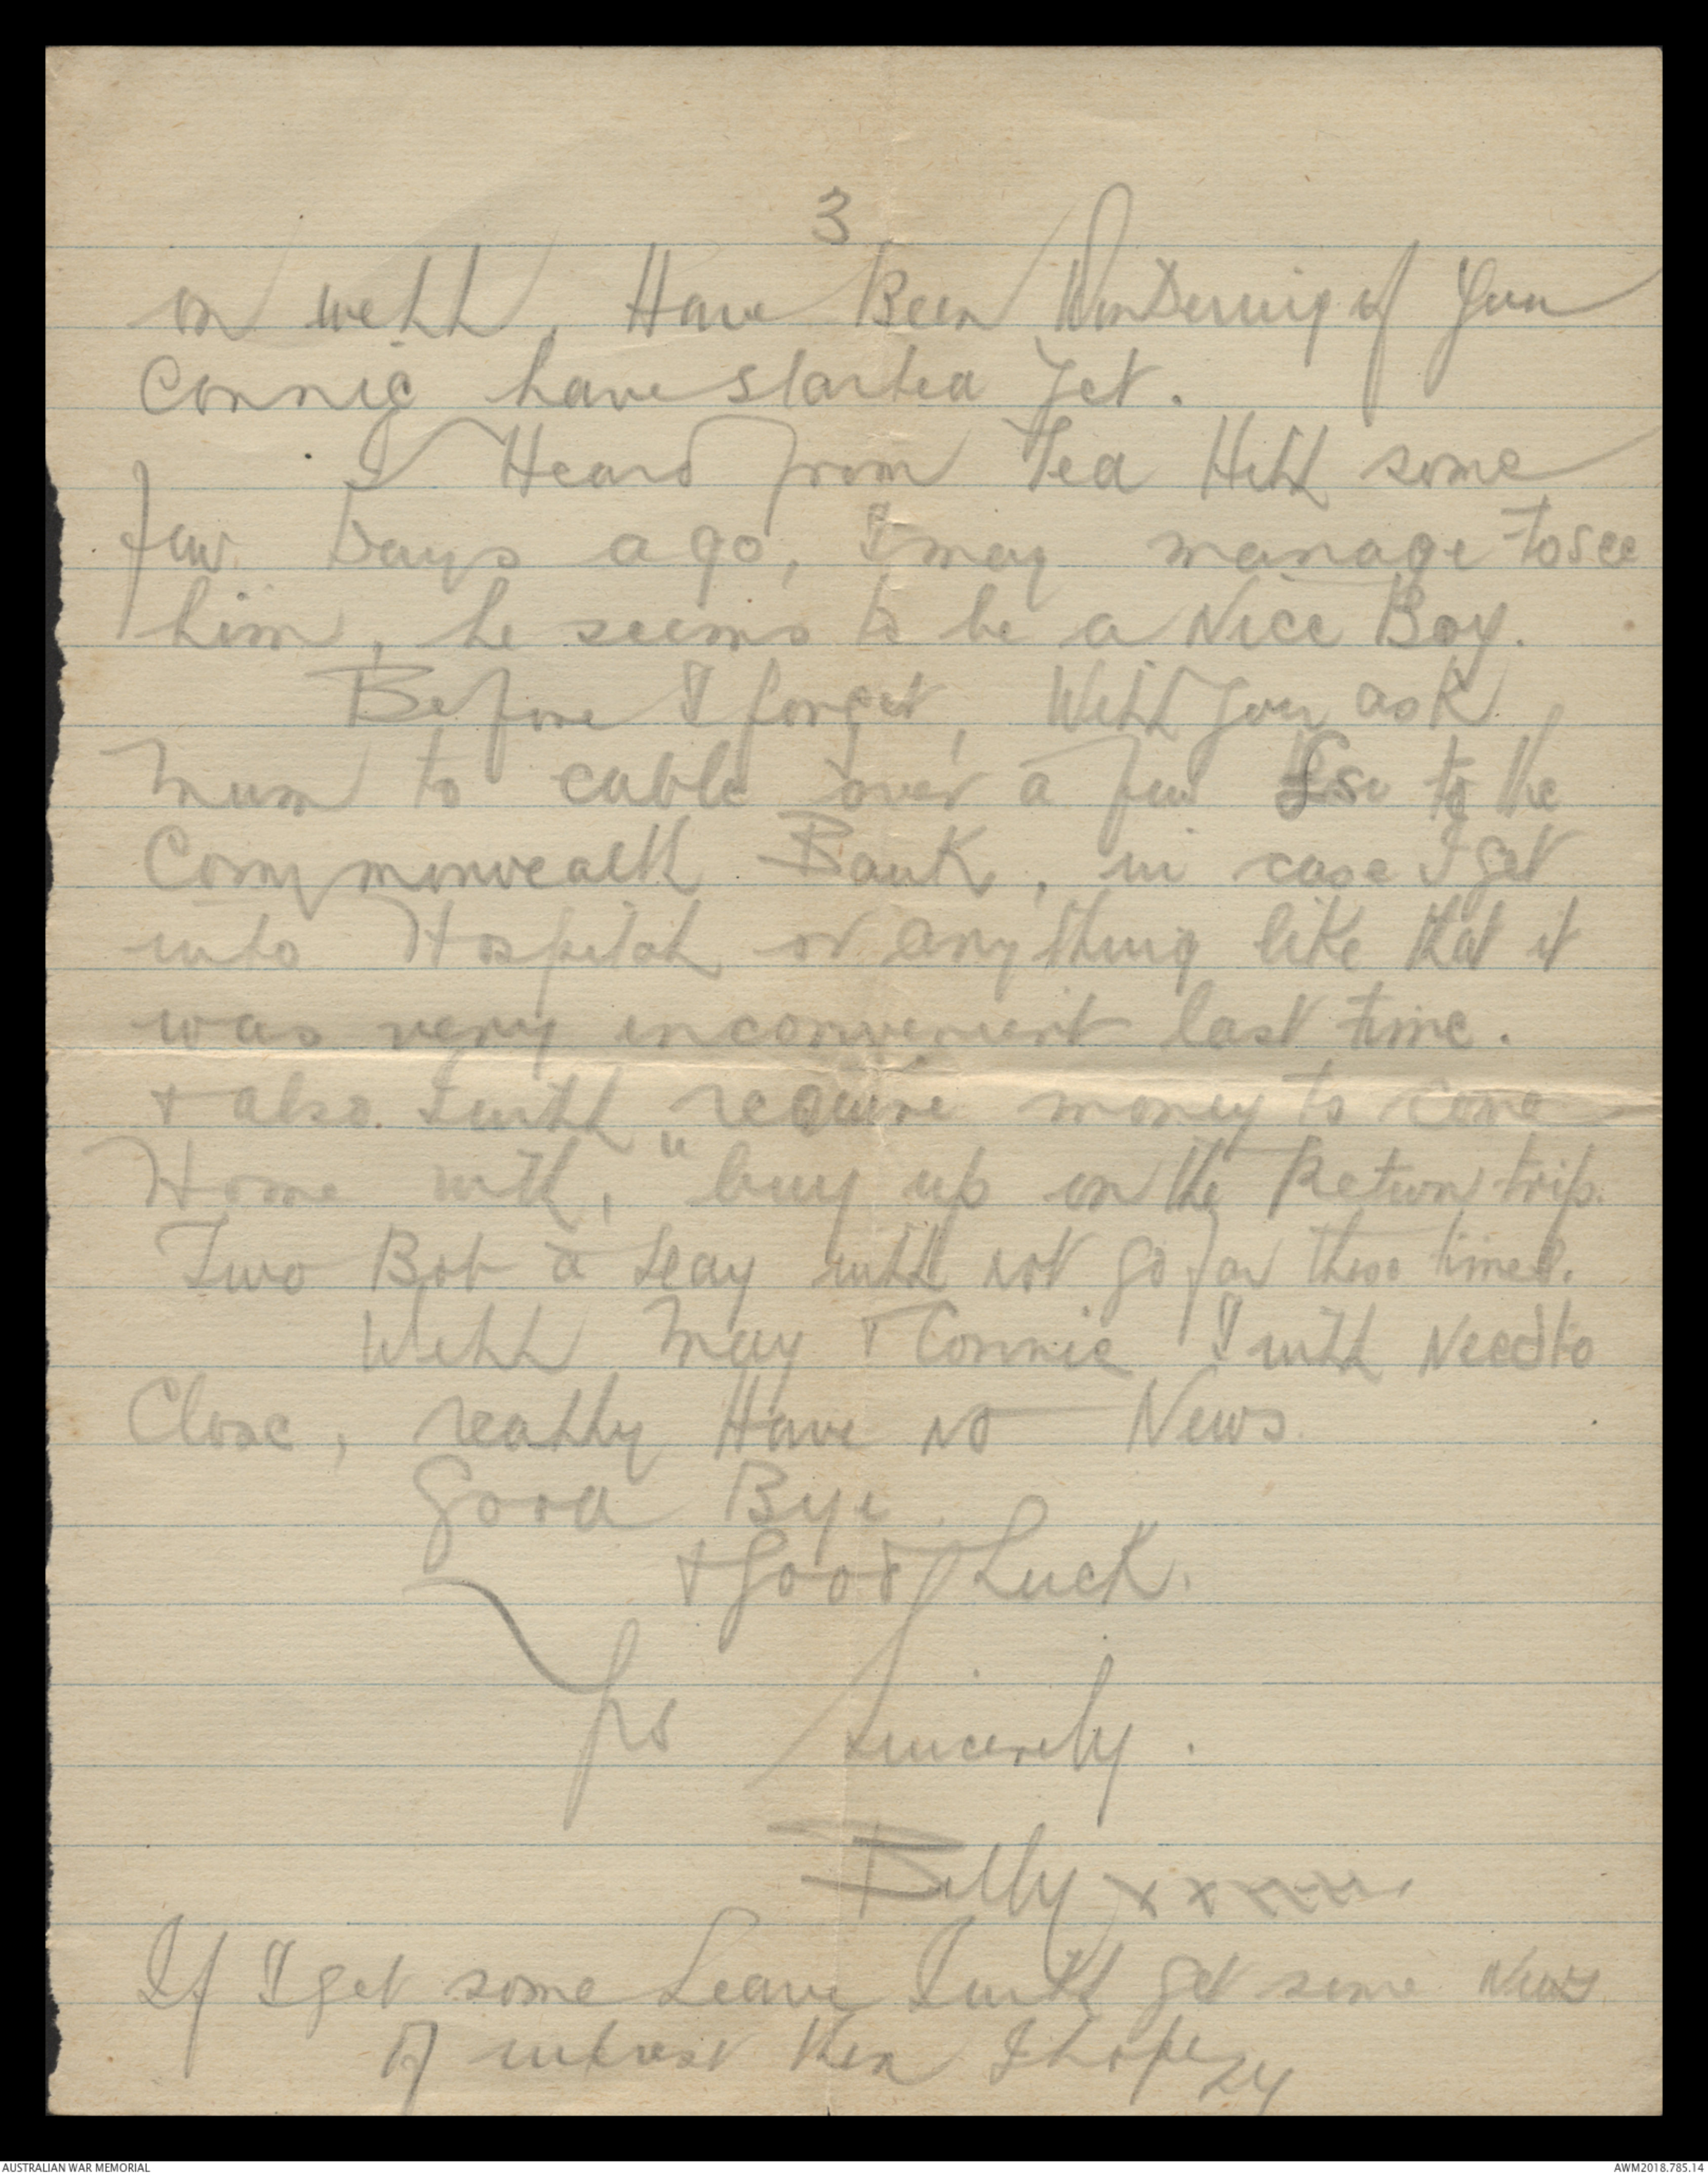 3
on well, Have Been Wondering if you
Connie have started yet.
I Heard from Ted Hill some
few Days ago, I may manage to see
him, he seems to be a Nice Boy.
Before I forget, Will you ask
Mum to cable over a few to the
Commonwealth Bank, in case I get
into Hospital or anything like that it
was very inconvenient last time.
+ also I will require money to come
Home with, " buy up on the Return trip.
Two Bob a Day will not go far these times.
Well May + Connie I will Need to
Close, really Have no News.
Good Bye
+ Good Luck.
Yrs Sincerely.
Billy xxxxxx
If I get some Leave I will get some News
of interest then I hope